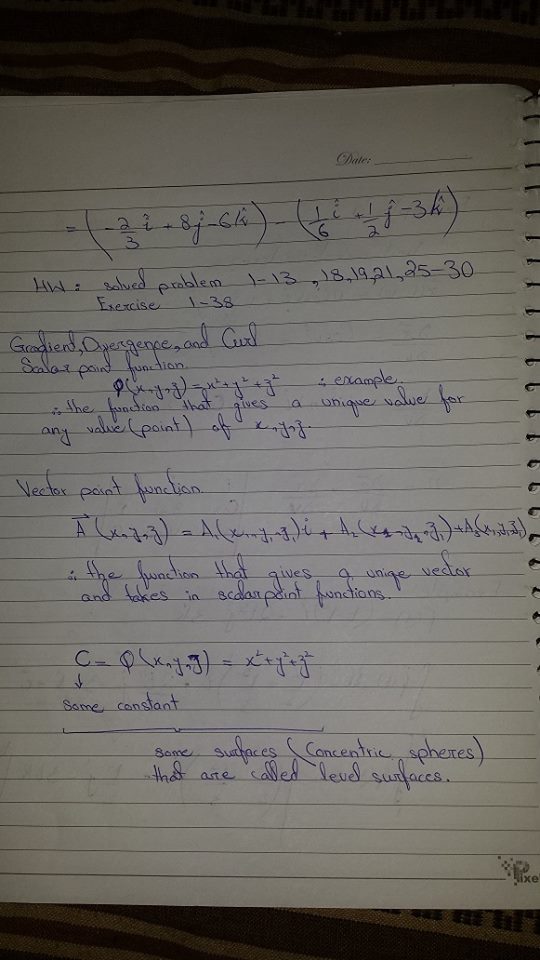 Date:
= (-2/3 î + 8ĵ - 6k̂) - (1/6 î + 1/2 ĵ - 3k̂)
HW: solved problem 1-13, 18, 19, 21, 25-30
Exercise 1-38
Gradient, Divergence, and Curl
Scalar point function
φ(x,y,z) = x²+y²+z² : example.
∴ the function that gives a unique value for
any value (point) of x,y,z.
Vector point function
A⃗(x,y,z) = A₁(x₁,y₁,z₁)i + A₂(x₂,y₂,z₁) + A₃(x₁,y₁,z₁)
∴ the function that gives a uniqe vector
and takes in scalar point functions.
C = φ(x,y,z) = x²+y²+z²
↓
some constant
some surfaces (concentric spheres)
that are called level surfaces.
Pixe